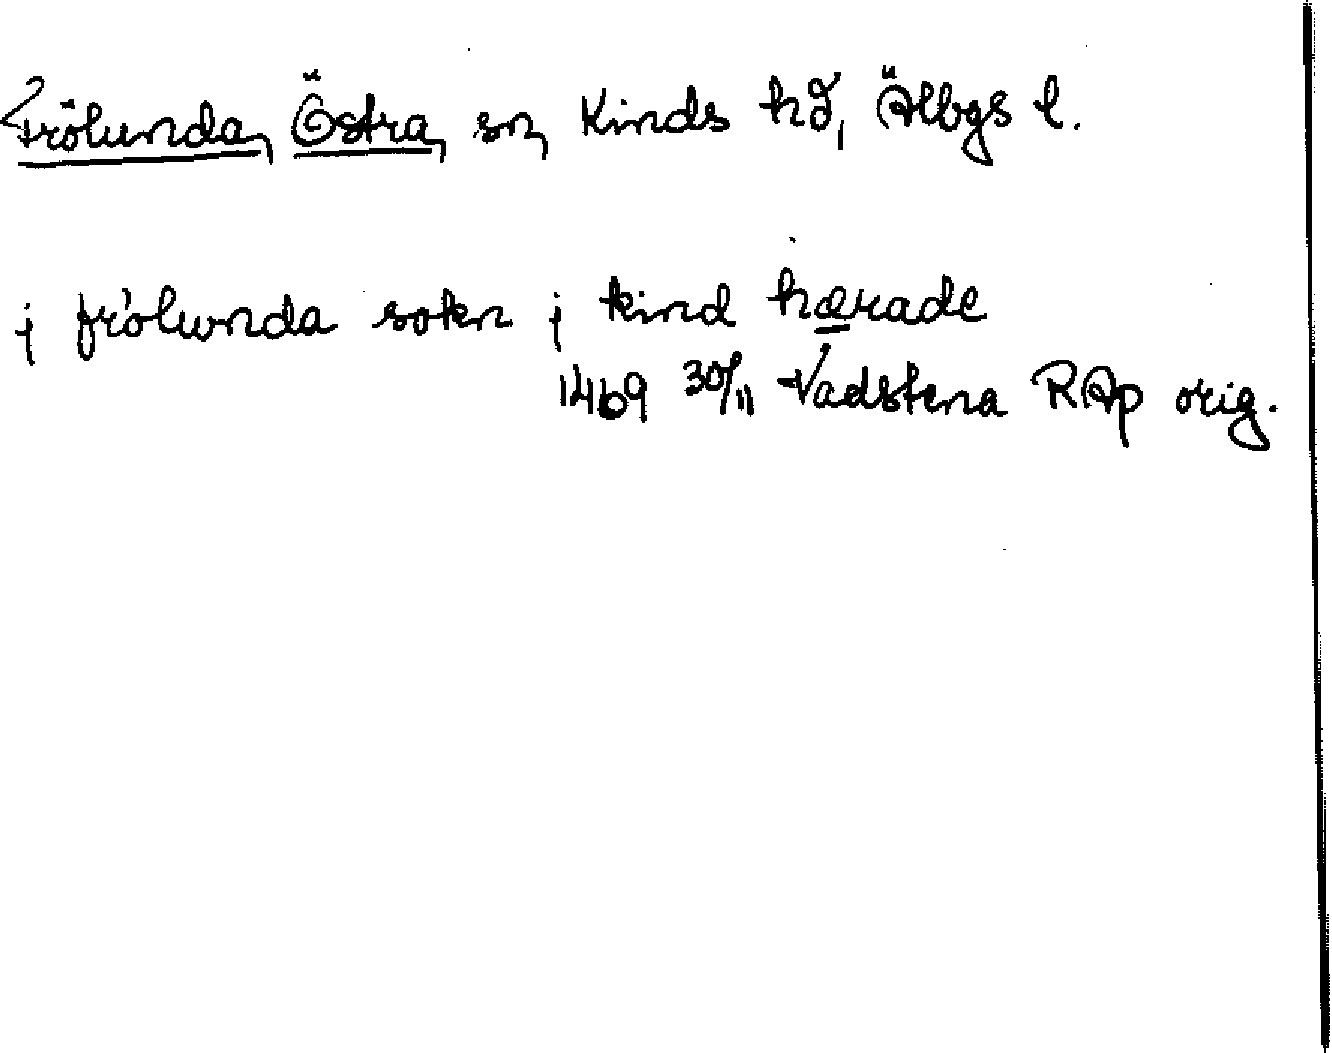 Frölunda, Östra, sn, Kinds hd, Älvbgs l.
j frólunda sokn j kind hærade
1469 30/11 Vadstena RAp orig.